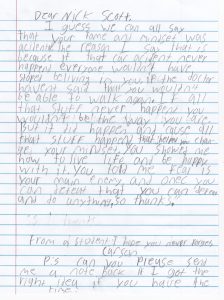 Dear Nick Scott,
I guess we can all say
that your fame and mindset was
acident the reason I say that is
because if that car acident never
happend everyone would have
stoped beliving in you if the doctor
havent said that you wouldn't
be able to walk again. If all
that stuff never happend you
wouldn't be the way you are.
But it did happen and cause all
that stuff happend that you chan-
ge your mindset. You showed me
how to live life and be happy
with it. You told me fear is
your own enemy and once you
can defeat that you can
and do anything, so thanks,
From a student I hope you never forget
Carson
P.s can you please sent
me a note back if I got the
right idea if you haive the
time!